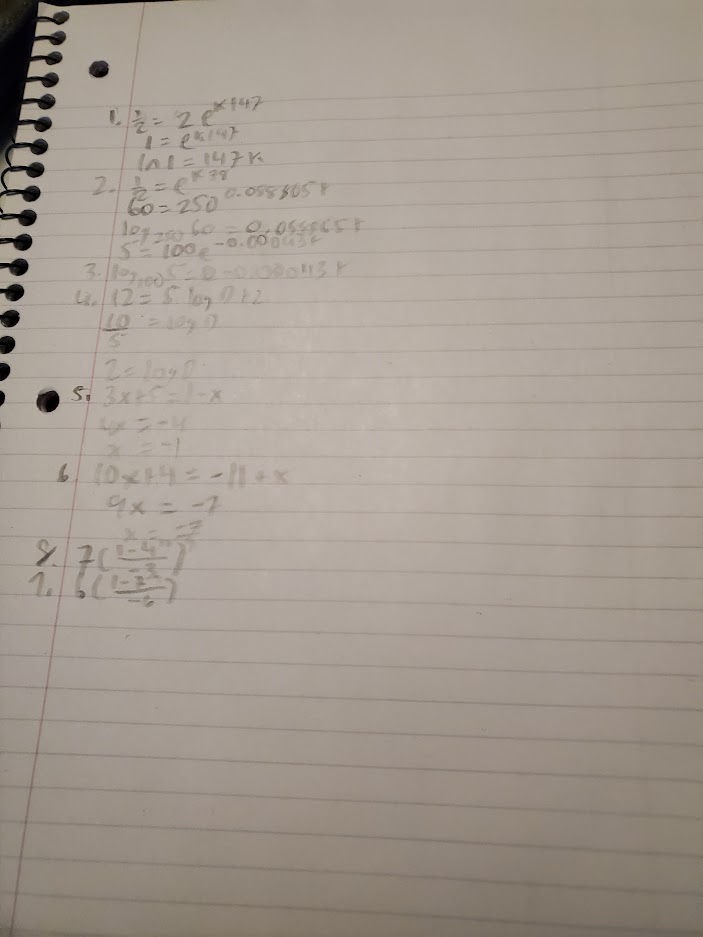 1. 1/2 = 2 e^k147
1 = e^k147
ln 1 = 147 k
2. 1/2 = e^k78
60 = 250
log 250 60 =
5 = 100e^-0.00043t
3. log 100 5 = -0.00043 t
4. 12 = 5 log D + 2
10/5 = log D
2 = log D
5. 3x + 5 = 1 - x
4x = -4
x = -1
6. 10x + 4 = -11 + x
9x = -7
x = -7
8. 7 (1 - 4 / -3)
7. 6 (1 - 7 / -6)